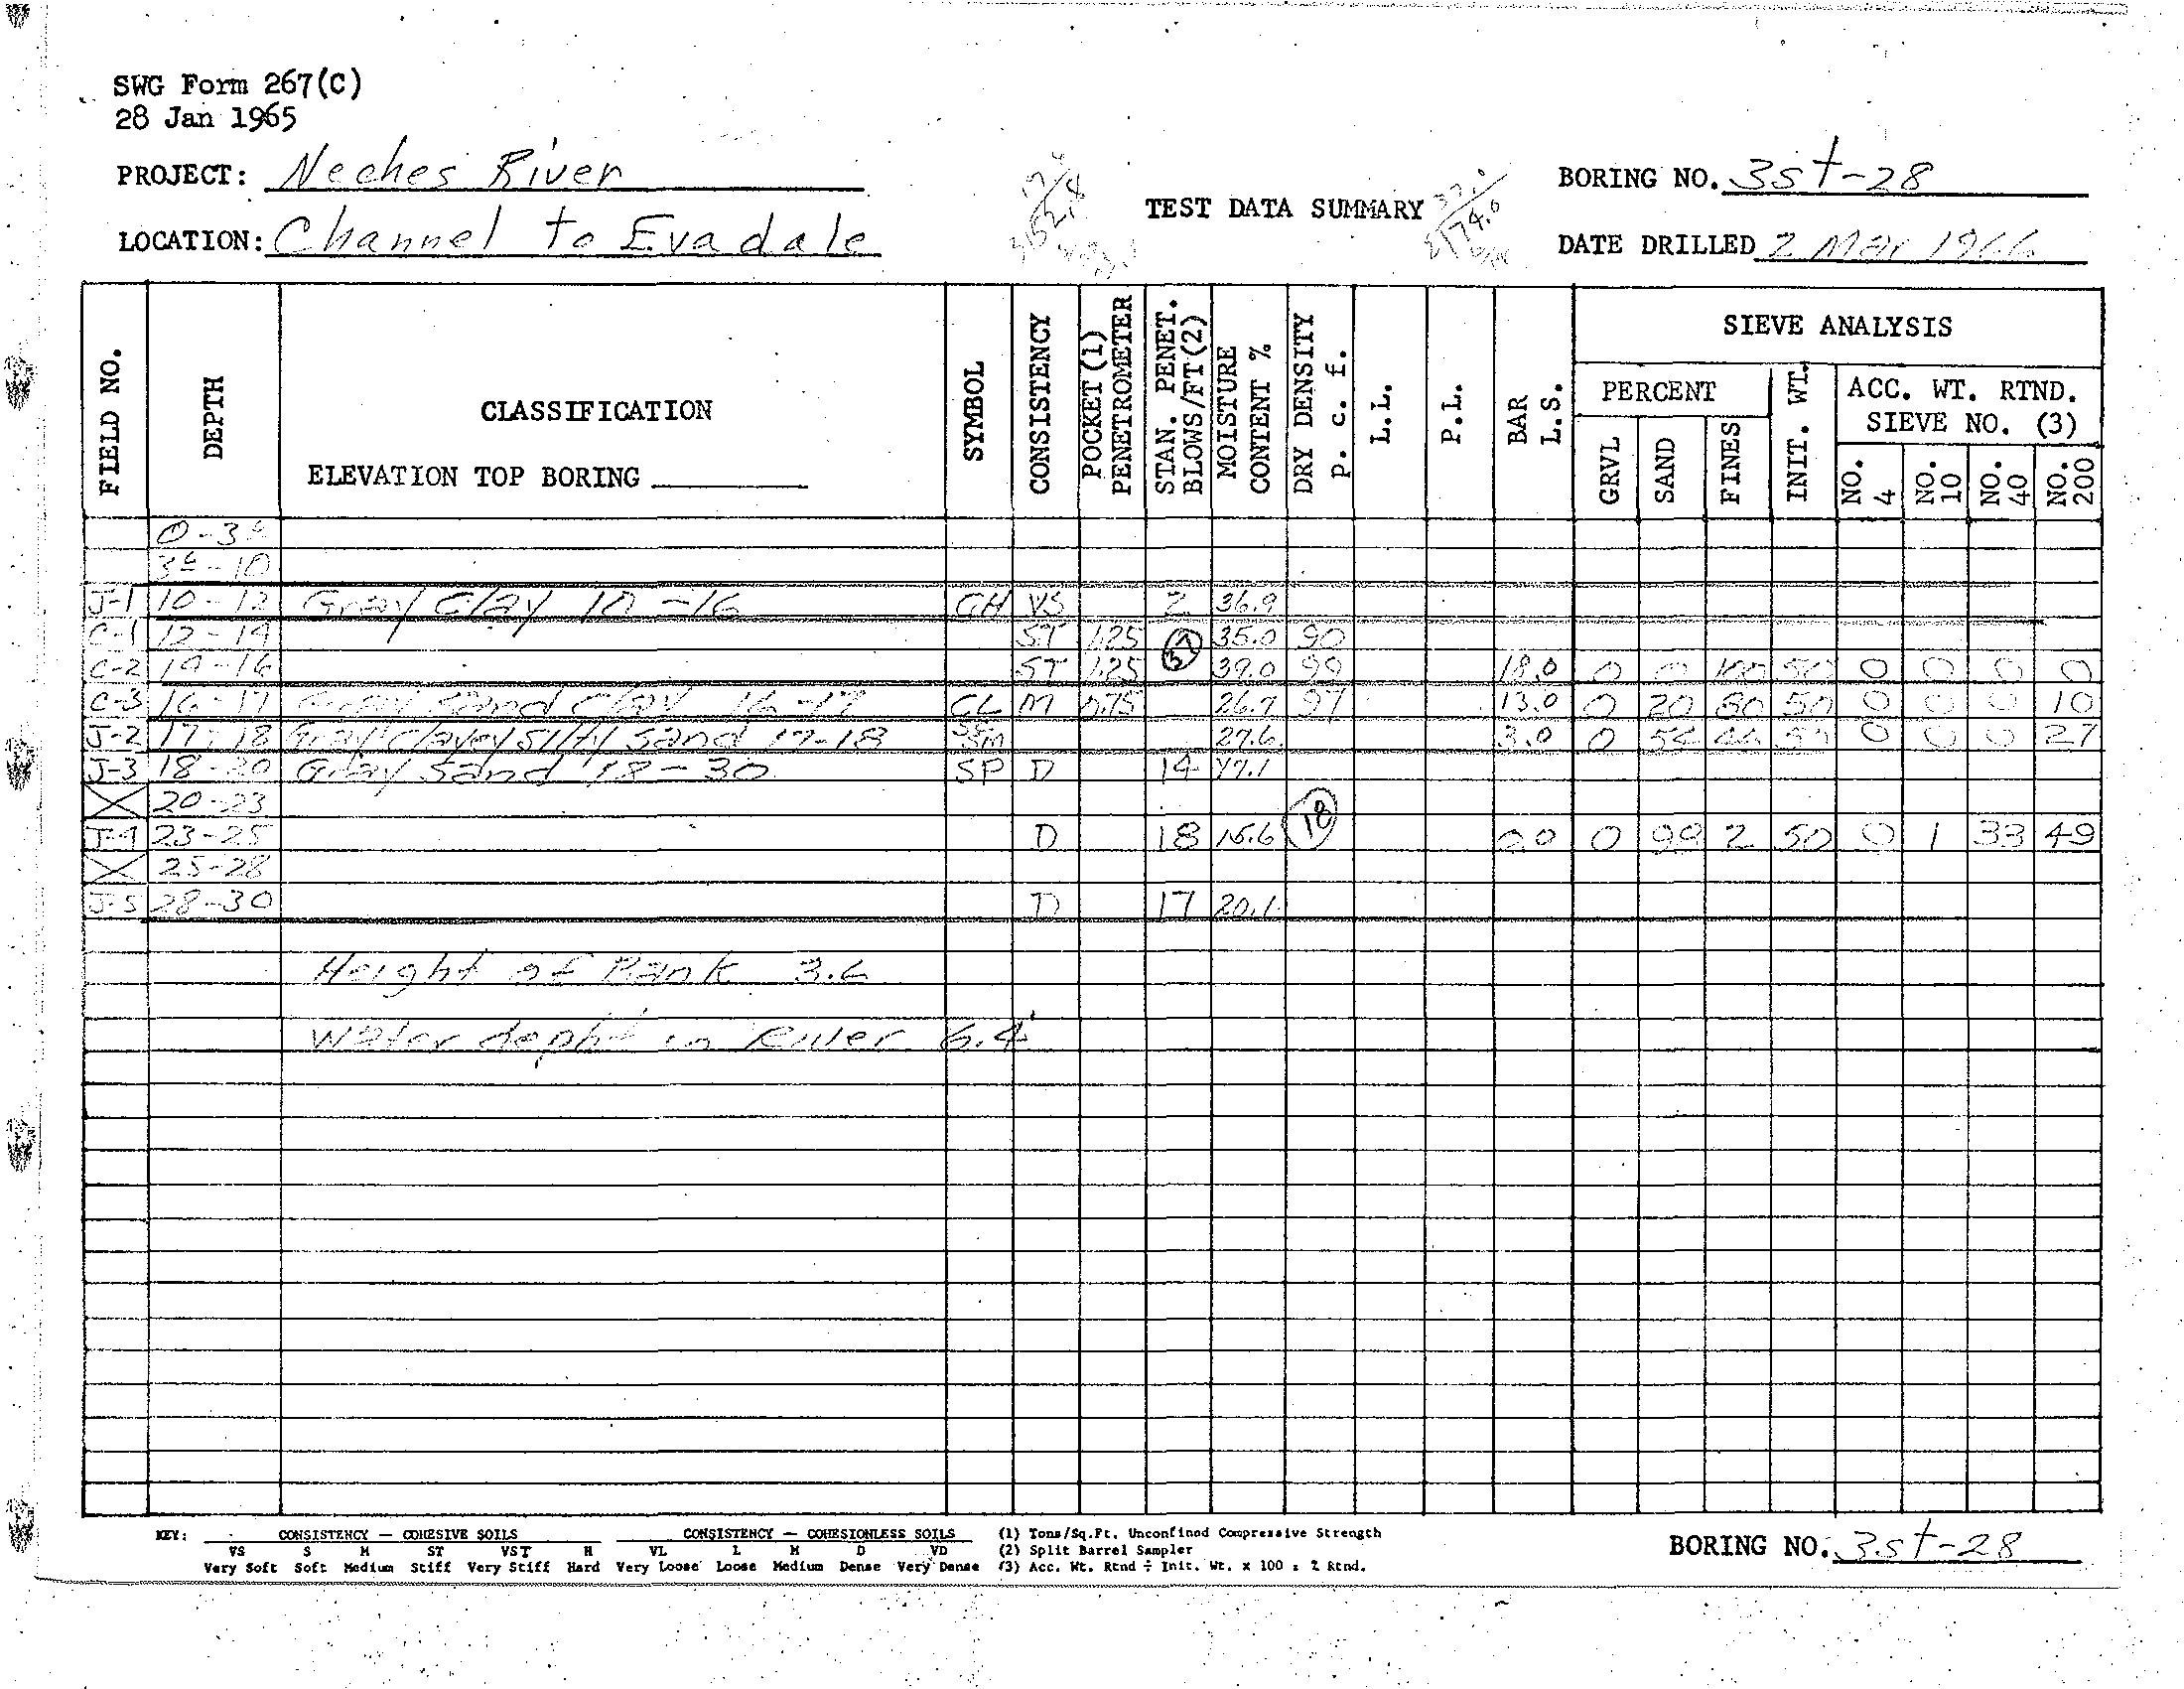 SWG Form 267(C)
28 Jan 1965
PROJECT: Neches River
LOCATION: Channel to Evadale
TEST DATA SUMMARY
BORING NO. 3st-28
DATE DRILLED 2 Mar 1966
FIELD NO. DEPTH CLASSIFICATION SYMBOL CONSISTENCY POCKET (1) PENETROMETER STAN. PENET. BLOWS/FT(2) MOISTURE CONTENT % DRY DENSITY P. c. f. L.L. P.L. BAR L.S. SIEVE ANALYSIS
ELEVATION TOP BORING
PERCENT INIT. WT. ACC. WT. RTND. SIEVE NO. (3)
GRVL SAND FINES NO. 4 NO. 10 NO. 40 NO. 200
0-3.6
3.6-10
J-1 10-12 Gray Clay 10-16 CH VS 2 36.9
C-1 12-14 ST 1.25 35.0 90
C-2 14-16 ST 1.25 37 39.0 99 18.0 0 0 100 50 0 0 0 0
C-3 16-17 Gray Sand Clay 16-17 CL M 0.75 26.7 97 13.0 0 20 80 50 0 0 0 10
J-2 17-18 Gray Clayey Silty Sand 17-18 SM 27.6 3.0 0 54 46 50 0 0 0 27
J-3 18-20 Gray Sand 18-30 SP D 14 17.1
20-23
J-4 23-25 D 18 15.6 18 0.0 0 98 2 50 0 1 33 49
25-28
J-5 28-30 D 17 20.1
Height of Bank 3.6
Water depht in River 6.4'
KEY: CONSISTENCY — COHESIVE SOILS CONSISTENCY — COHESIONLESS SOILS (1) Tons/Sq.Ft. Unconfined Compressive Strength
VS S M ST VST H VL L M D VD (2) Split Barrel Sampler
Very Soft Soft Medium Stiff Very Stiff Hard Very Loose Loose Medium Dense Very Dense (3) Acc. Wt. Rtnd ÷ Init. Wt. x 100 = % Rtnd.
BORING NO. 3st-28